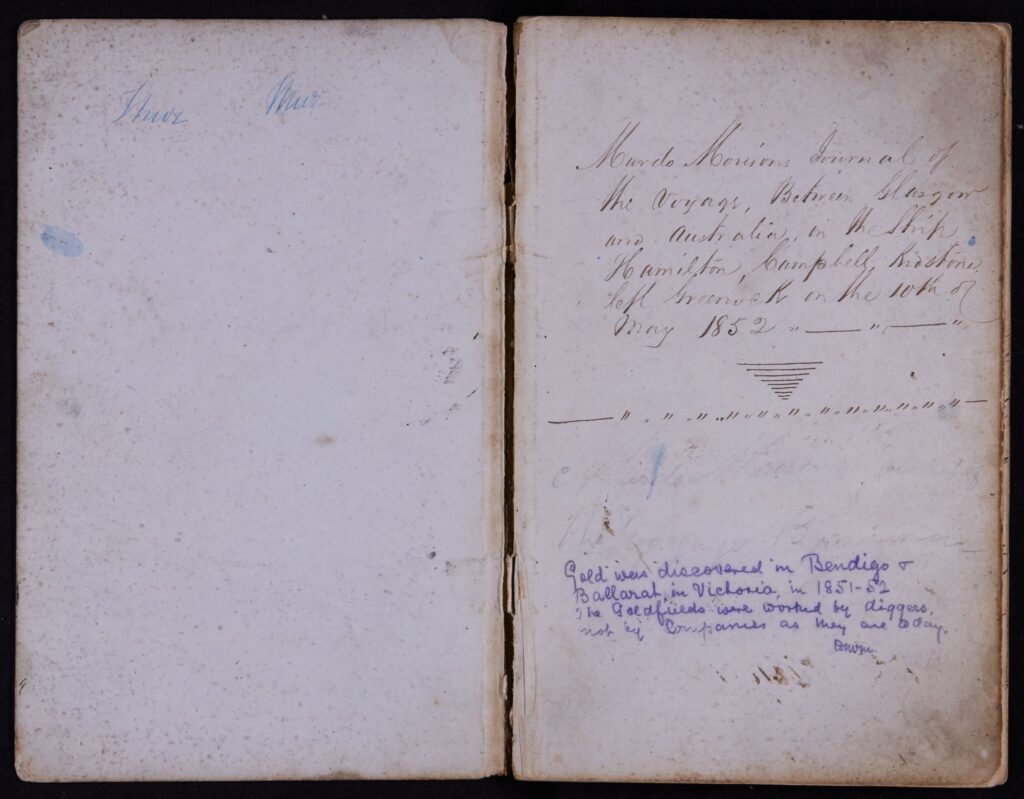 Murdo Morisons Journal of
the Voyage, Between Glasgow
and Australia, in the Ship
Hamilton, Campbell, Kidstone,
left Greenock on the 10th of
May 1852 " — " — "
The Voyage B
Gold was discovered in Bendigo &
Ballarat, in Victoria, in 1851-52
The Goldfields were worked by diggers,
not by Companies as they are today.